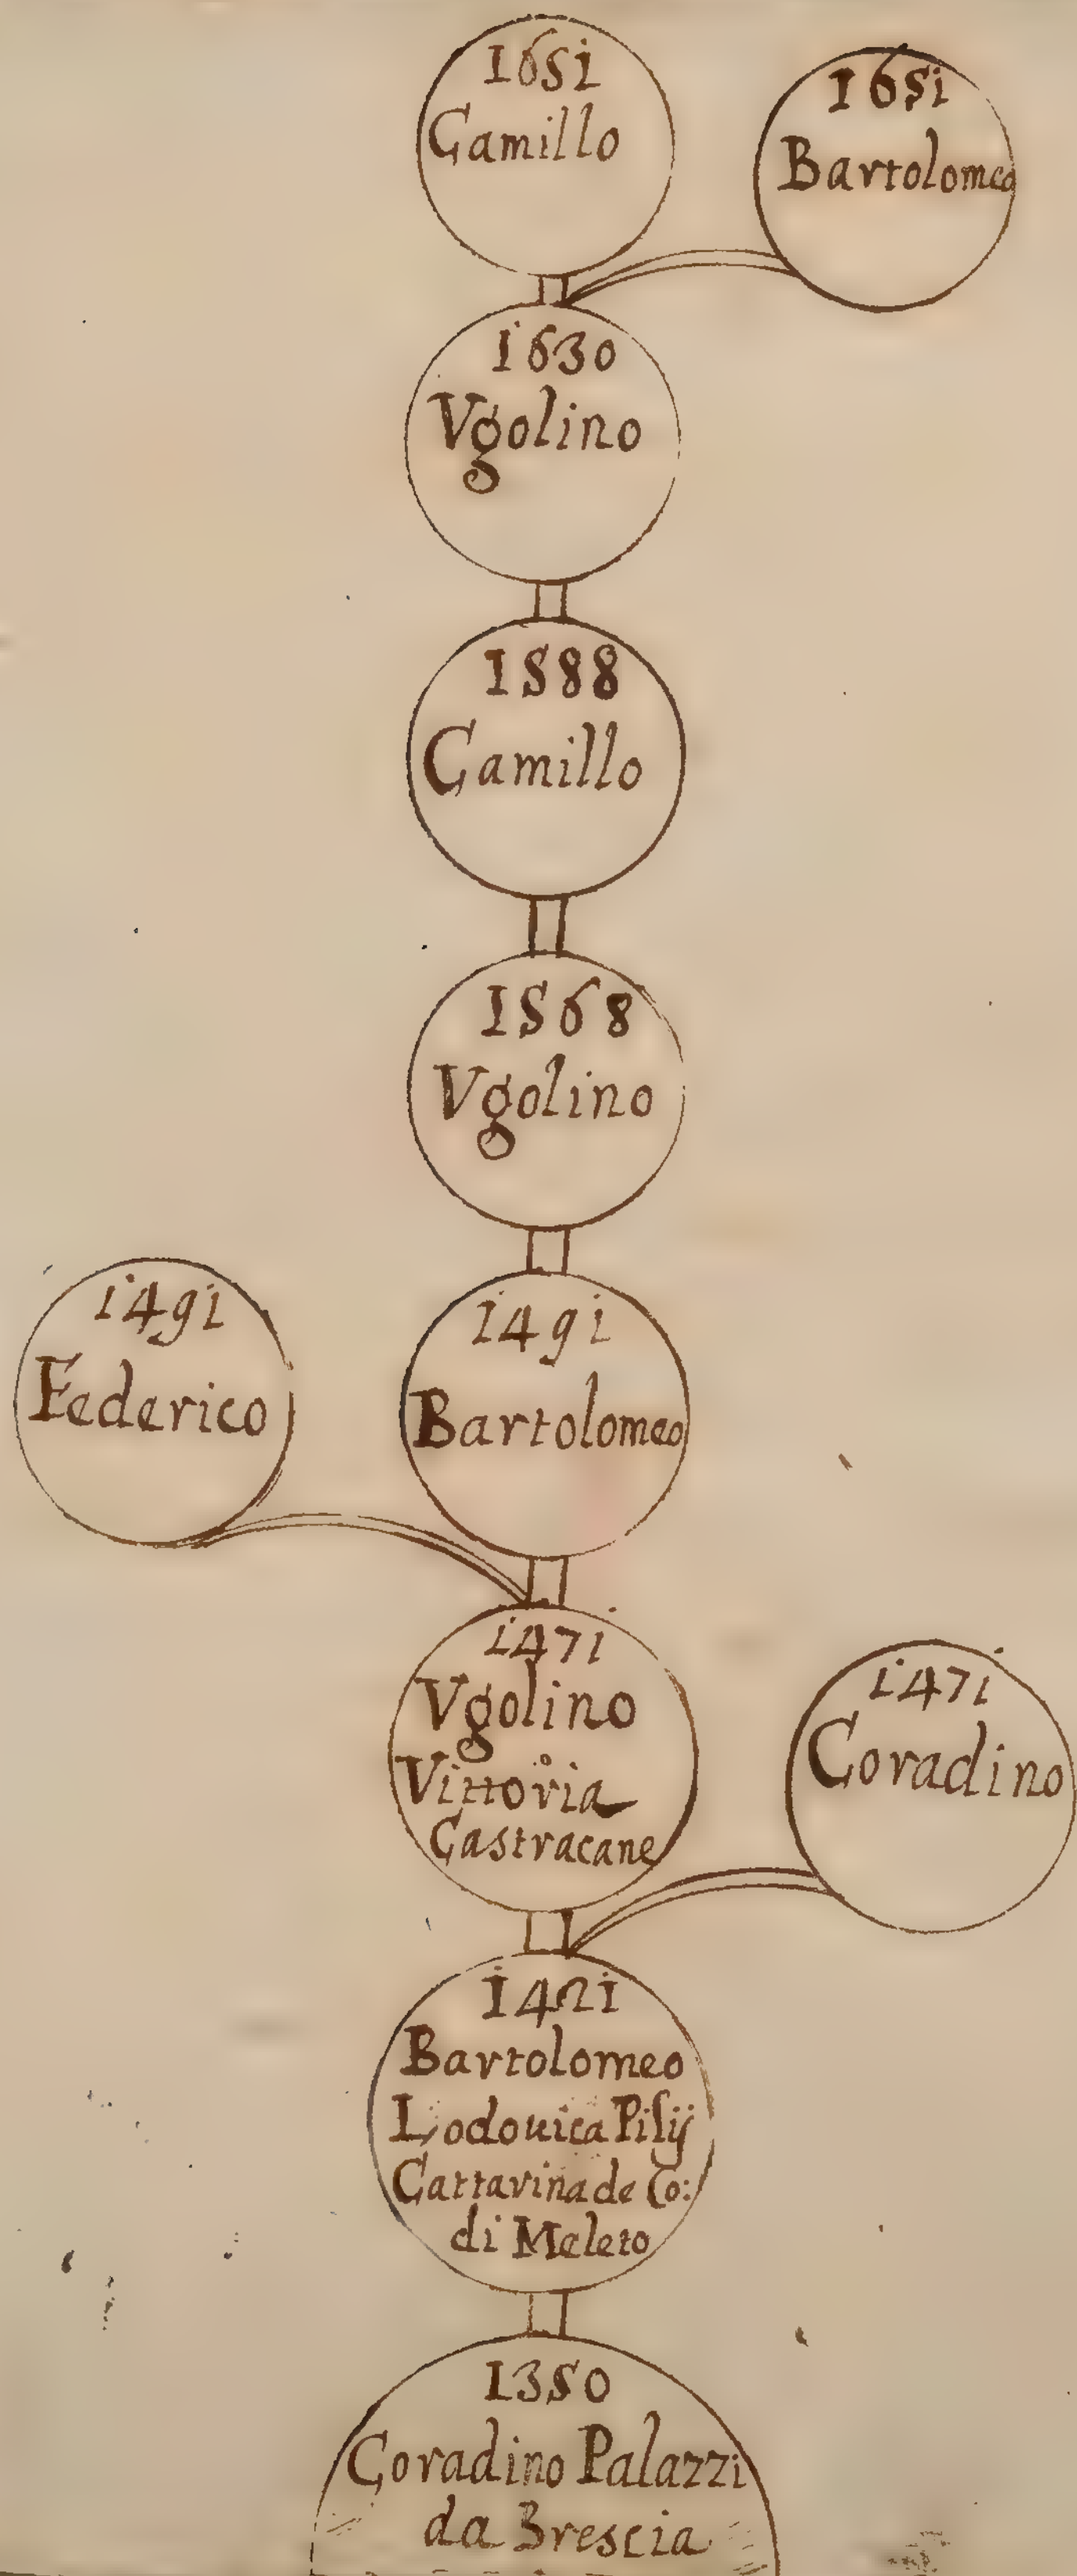 1651
Camillo
1651
Bartolomeo
1630
Vgolino
1588
Camillo
1568
Vgolino
1491
Federico
1491
Bartolomeo
1471
Vgolino
Vittoria
Castracane
1471
Coradino
1421
Bartolomeo
Lodouica Pisij
Cattarina de Co:
di Meleto
1350
Coradino Palazzi
da Brescia